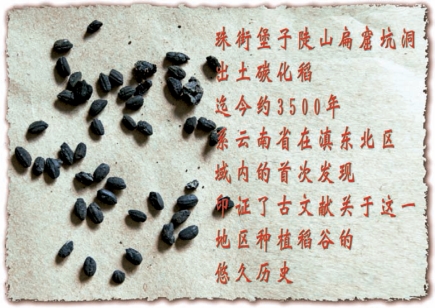 珠街堡子陡山扁窟坑洞
出土碳化稻
迄今约3500年
系云南省在滇东北区
域内的首次发现
印证了古文献关于这一
地区种植稻谷的
悠久历史